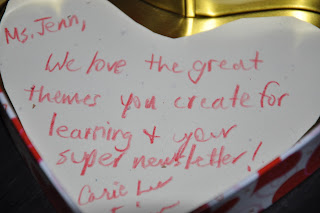 Ms. Jenn,
We love the great
themes you create for
learning & your
super newsletter!